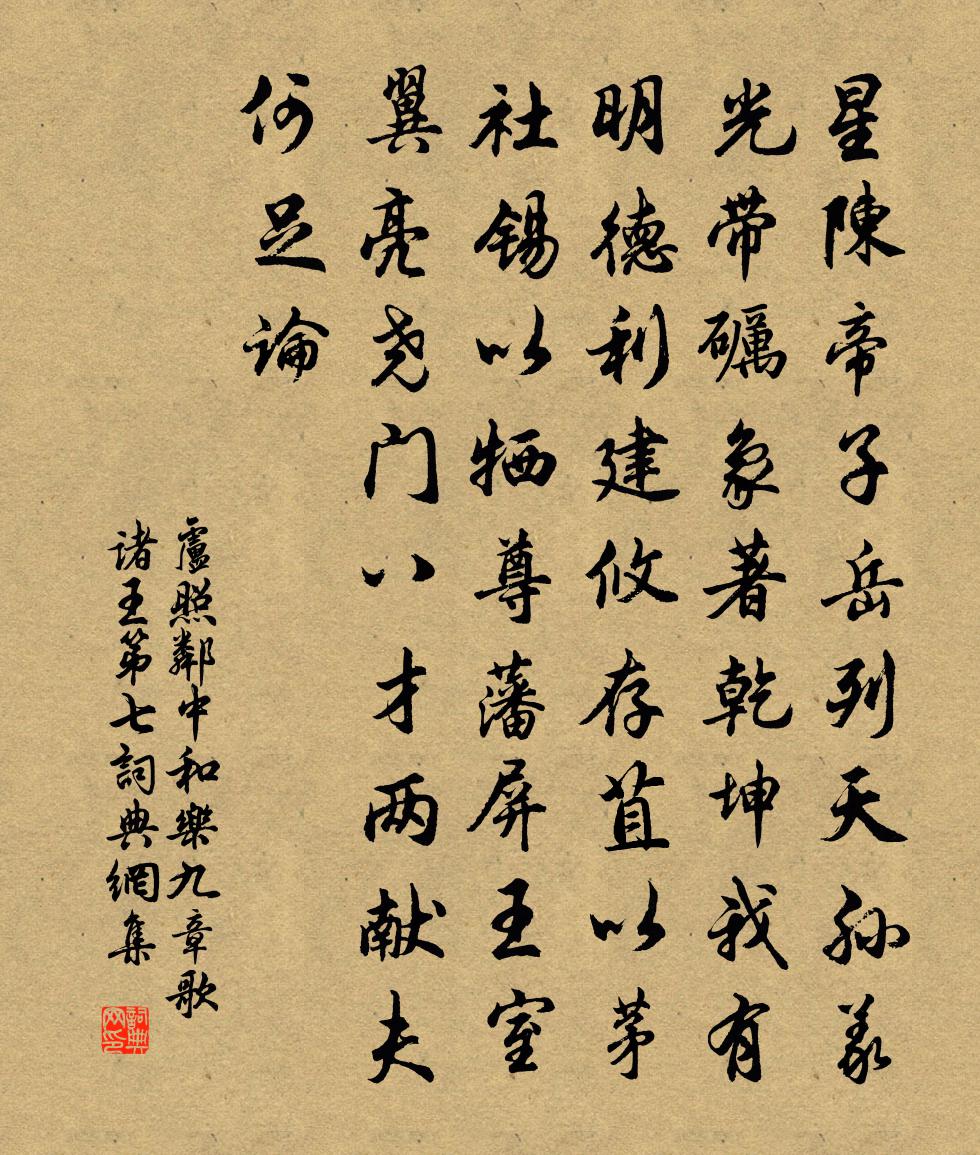 星陳帝子岳列天孙義
光带礪象著乾坤我有
明德利建攸存苴以茅
社锡以牺尊藩屏王室
翼亮尧门八才两献夫
何足論
盧照鄰中和樂九章歌
诸王第七詞典網集
詞典网印